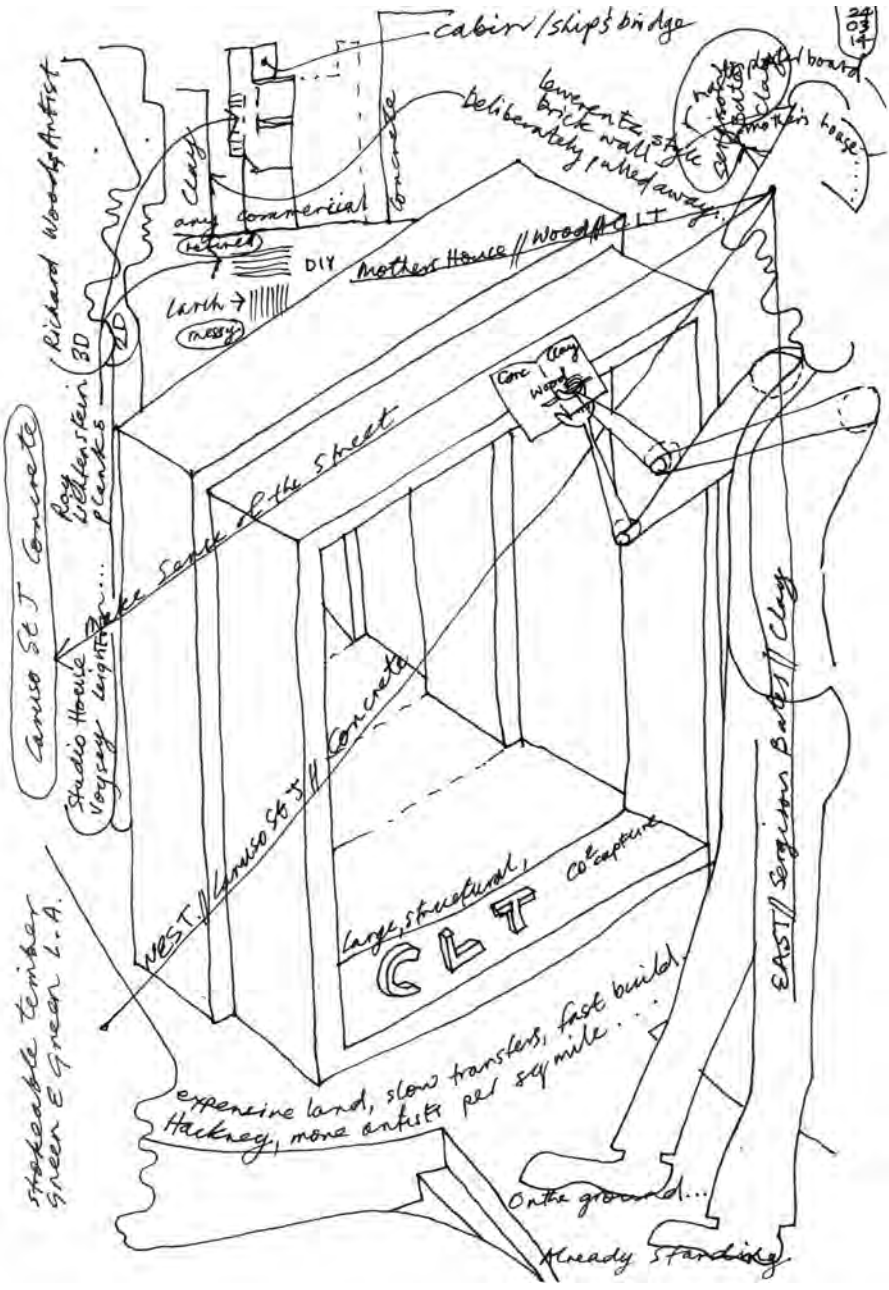 cabin/ship's bridge
24
03
14
Leverentz style
brick wall
Deliberately pulled away...
plasterboard
Clay
mothers house
.....
Clay
Concrete
any commercial
retained
DIY
Mothers House // Wood // CLT
Larch →
messy
Richard Woods Artist
3D
2D
Ray
Lichtenstein
planks
Caruso St J Concrete
Studio House
Voysey Leighton...
Make sense of the street
Conc.
Clay
Wood
WEST // Caruso St J // Concrete
EAST // Sergison Bates // Clay
Large, structural,
CO² capture
CLT
strokeable timber
Green E Green L.A.
expensive land, slow transfers, fast build,
Hackney, more artists per sq mile...
On the ground...
Already standing.